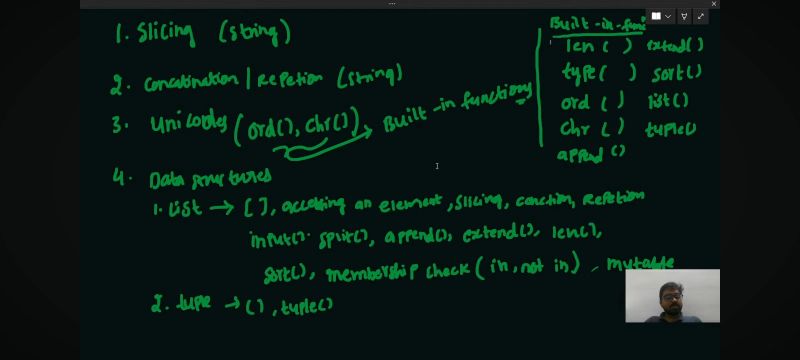 1. Slicing (string)
2. Concatination | Repetion (string)
3. Unicodes (ord(), chr()) → Built-in functions
4. Data structures
1. List → [ ], accessing an element, slicing, conction, Repetion
input(). split(), append(), extend(), len(),
sort(), membership check (in, not in), mutable
2. tuple → (), tuple()
Built-in-func
len ( ) extend()
type ( ) sort()
ord ( ) list()
chr ( ) tuple()
append ()